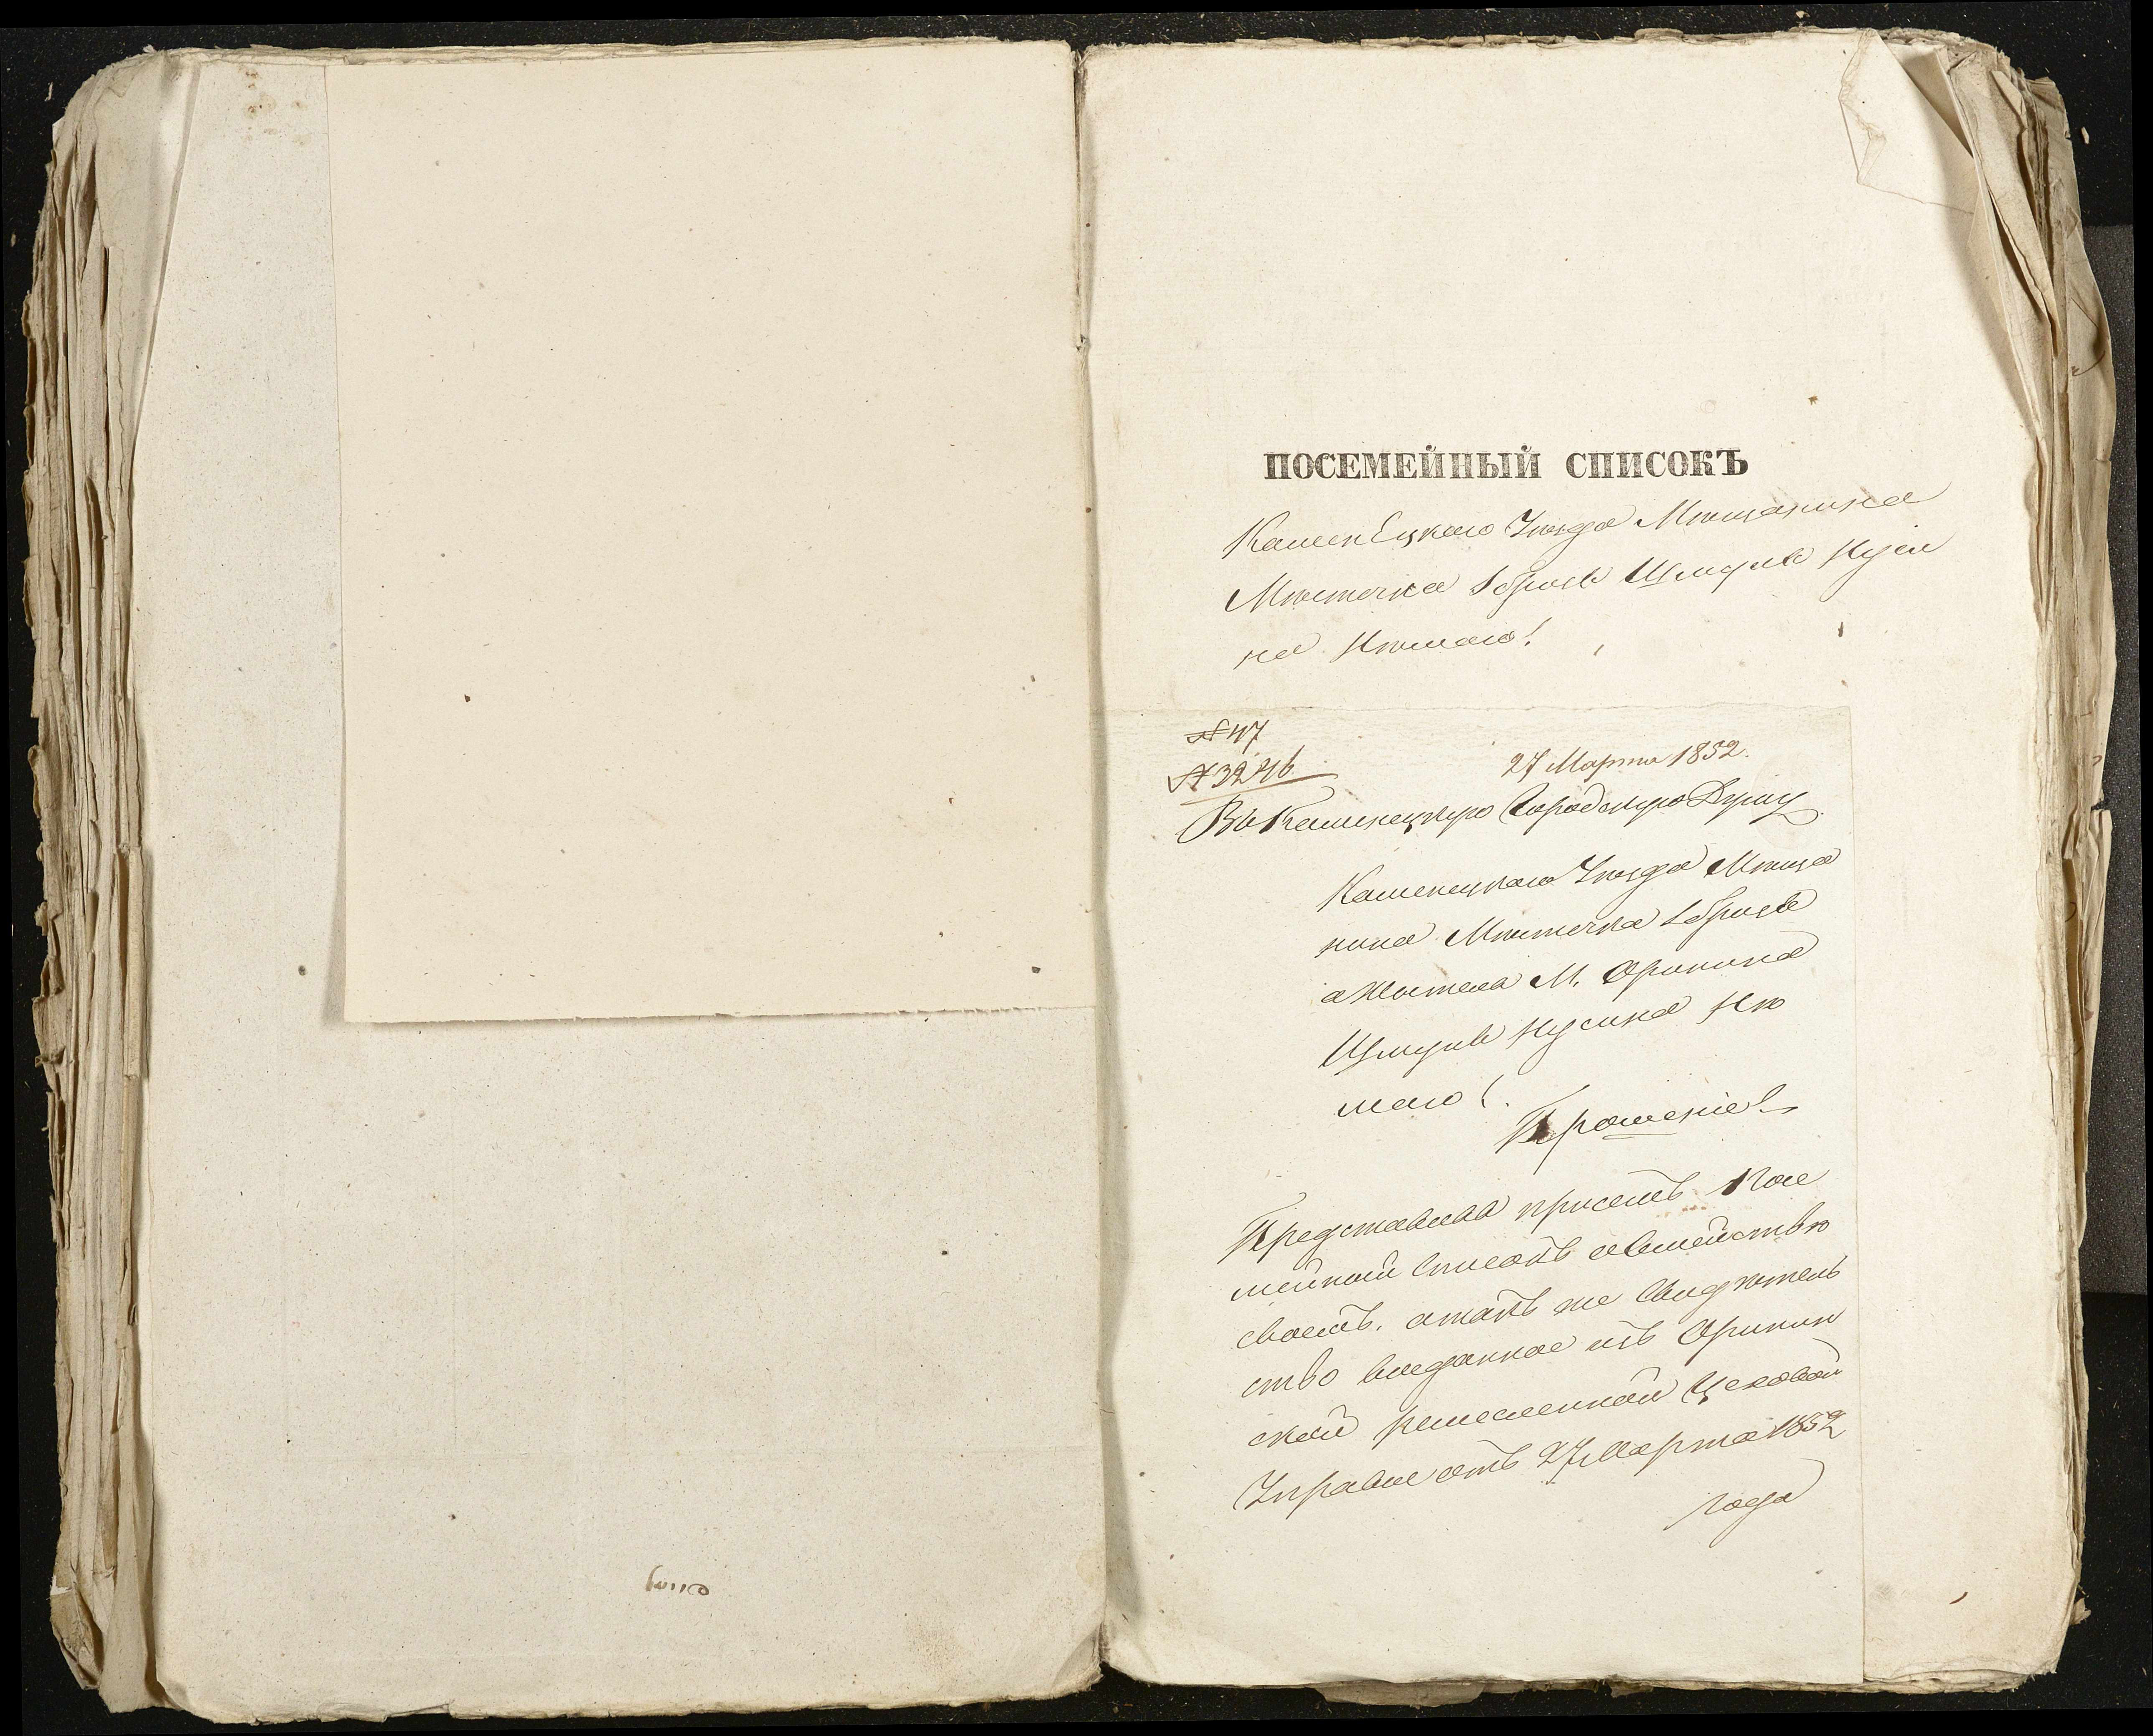 ПОСЕМЕЙНЫЙ СПИСОКЪ
Каменецкаго Уѣзда Мѣщанина
Мѣстечка Збрызь Шмуль Нуси
на
№ 47
№ 3246
27 Марта 1852.
Въ Каменецкую Городскую Думу
Каменецкаго Уѣзда Мѣща
нина Мѣстечка Збрызь
а жителя М. Оринина
Шмуль Нусина
Прошеніе
Представляя присемъ Посе
мейный Списокъ
своемъ, атакъ же Свидѣтель
ство выданное изъ Оринин
ской ремесленной Цеховой
Управы отъ 27 Марта 1852
года